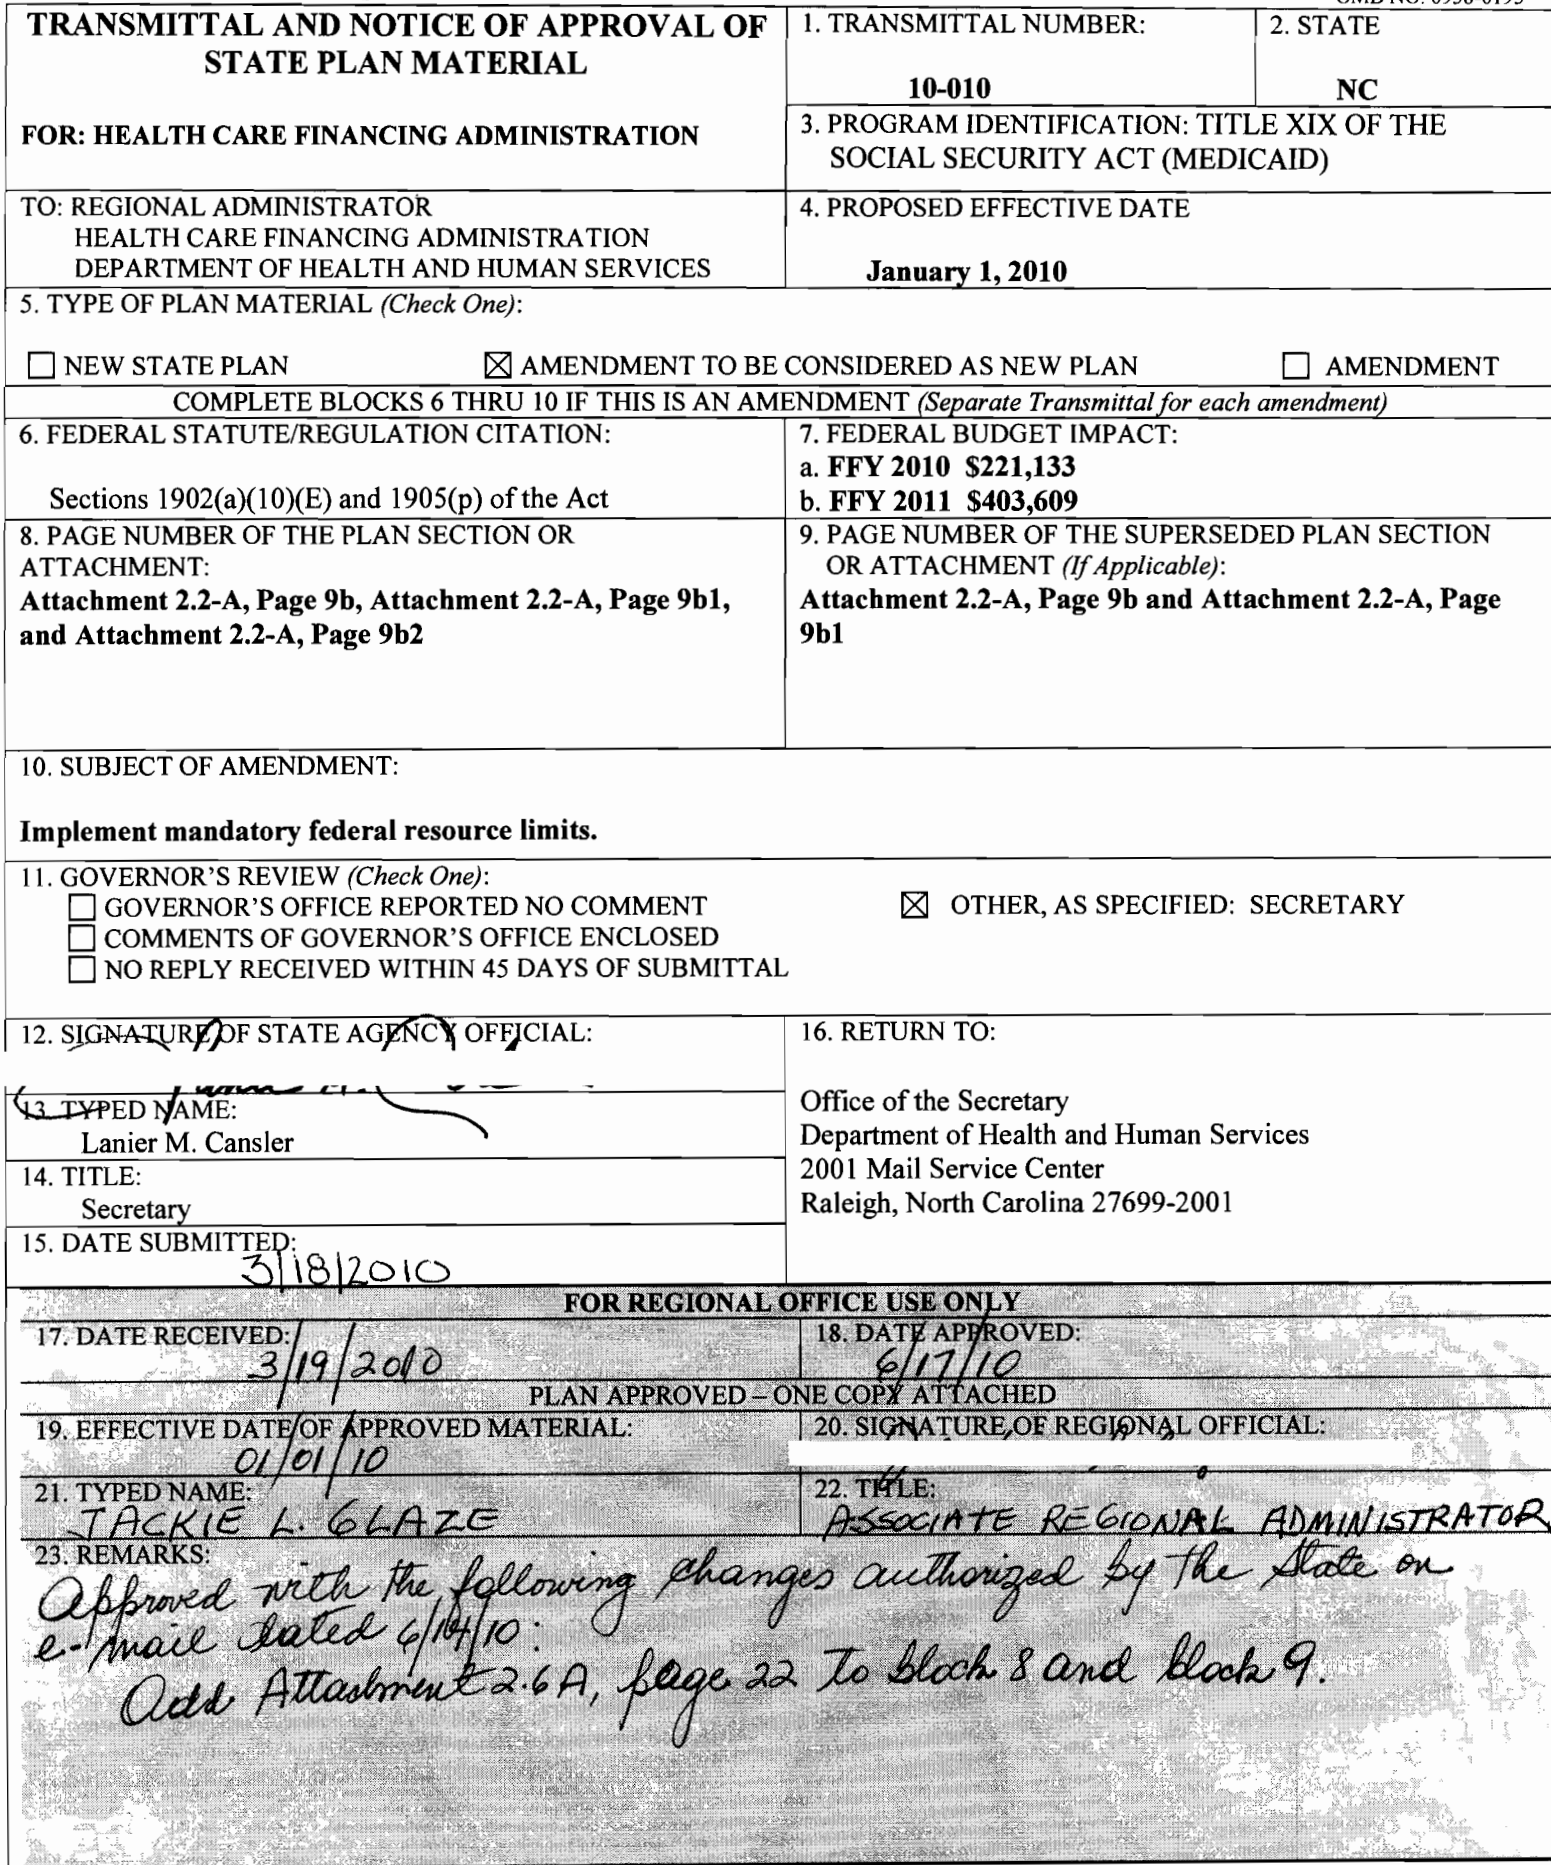 TRANSMITTAL AND NOTICE OF APPROVAL OF
STATE PLAN MATERIAL
FOR: HEALTH CARE FINANCING ADMINISTRATION
1. TRANSMITTAL NUMBER:
10-010
2. STATE
NC
3. PROGRAM IDENTIFICATION: TITLE XIX OF THE
SOCIAL SECURITY ACT (MEDICAID)
TO: REGIONAL ADMINISTRATOR
HEALTH CARE FINANCING ADMINISTRATION
DEPARTMENT OF HEALTH AND HUMAN SERVICES
4. PROPOSED EFFECTIVE DATE
January 1, 2010
5. TYPE OF PLAN MATERIAL (Check One):
☐ NEW STATE PLAN ☒ AMENDMENT TO BE CONSIDERED AS NEW PLAN ☐ AMENDMENT
COMPLETE BLOCKS 6 THRU 10 IF THIS IS AN AMENDMENT (Separate Transmittal for each amendment)
6. FEDERAL STATUTE/REGULATION CITATION:
Sections 1902(a)(10)(E) and 1905(p) of the Act
7. FEDERAL BUDGET IMPACT:
a. FFY 2010 $221,133
b. FFY 2011 $403,609
8. PAGE NUMBER OF THE PLAN SECTION OR
ATTACHMENT:
Attachment 2.2-A, Page 9b, Attachment 2.2-A, Page 9b1,
and Attachment 2.2-A, Page 9b2
9. PAGE NUMBER OF THE SUPERSEDED PLAN SECTION
OR ATTACHMENT (If Applicable):
Attachment 2.2-A, Page 9b and Attachment 2.2-A, Page
9b1
10. SUBJECT OF AMENDMENT:
Implement mandatory federal resource limits.
11. GOVERNOR'S REVIEW (Check One):
☐ GOVERNOR'S OFFICE REPORTED NO COMMENT
☐ COMMENTS OF GOVERNOR'S OFFICE ENCLOSED
☐ NO REPLY RECEIVED WITHIN 45 DAYS OF SUBMITTAL
☒ OTHER, AS SPECIFIED: SECRETARY
12. SIGNATURE OF STATE AGENCY OFFICIAL:
13. TYPED NAME:
Lanier M. Cansler
14. TITLE:
Secretary
15. DATE SUBMITTED:
3/18/2010
16. RETURN TO:
Office of the Secretary
Department of Health and Human Services
2001 Mail Service Center
Raleigh, North Carolina 27699-2001
FOR REGIONAL OFFICE USE ONLY
17. DATE RECEIVED:
3/19/2010
18. DATE APPROVED:
6/17/10
PLAN APPROVED – ONE COPY ATTACHED
19. EFFECTIVE DATE OF APPROVED MATERIAL:
01/01/10
20. SIGNATURE OF REGIONAL OFFICIAL:
21. TYPED NAME:
JACKIE L. GLAZE
22. TITLE:
ASSOCIATE REGIONAL ADMINISTRATOR
23. REMARKS:
Approved with the following changes authorized by the State on
e-mail dated 6/14/10:
Add Attachment 2.6A, page 22 to block 8 and block 9.